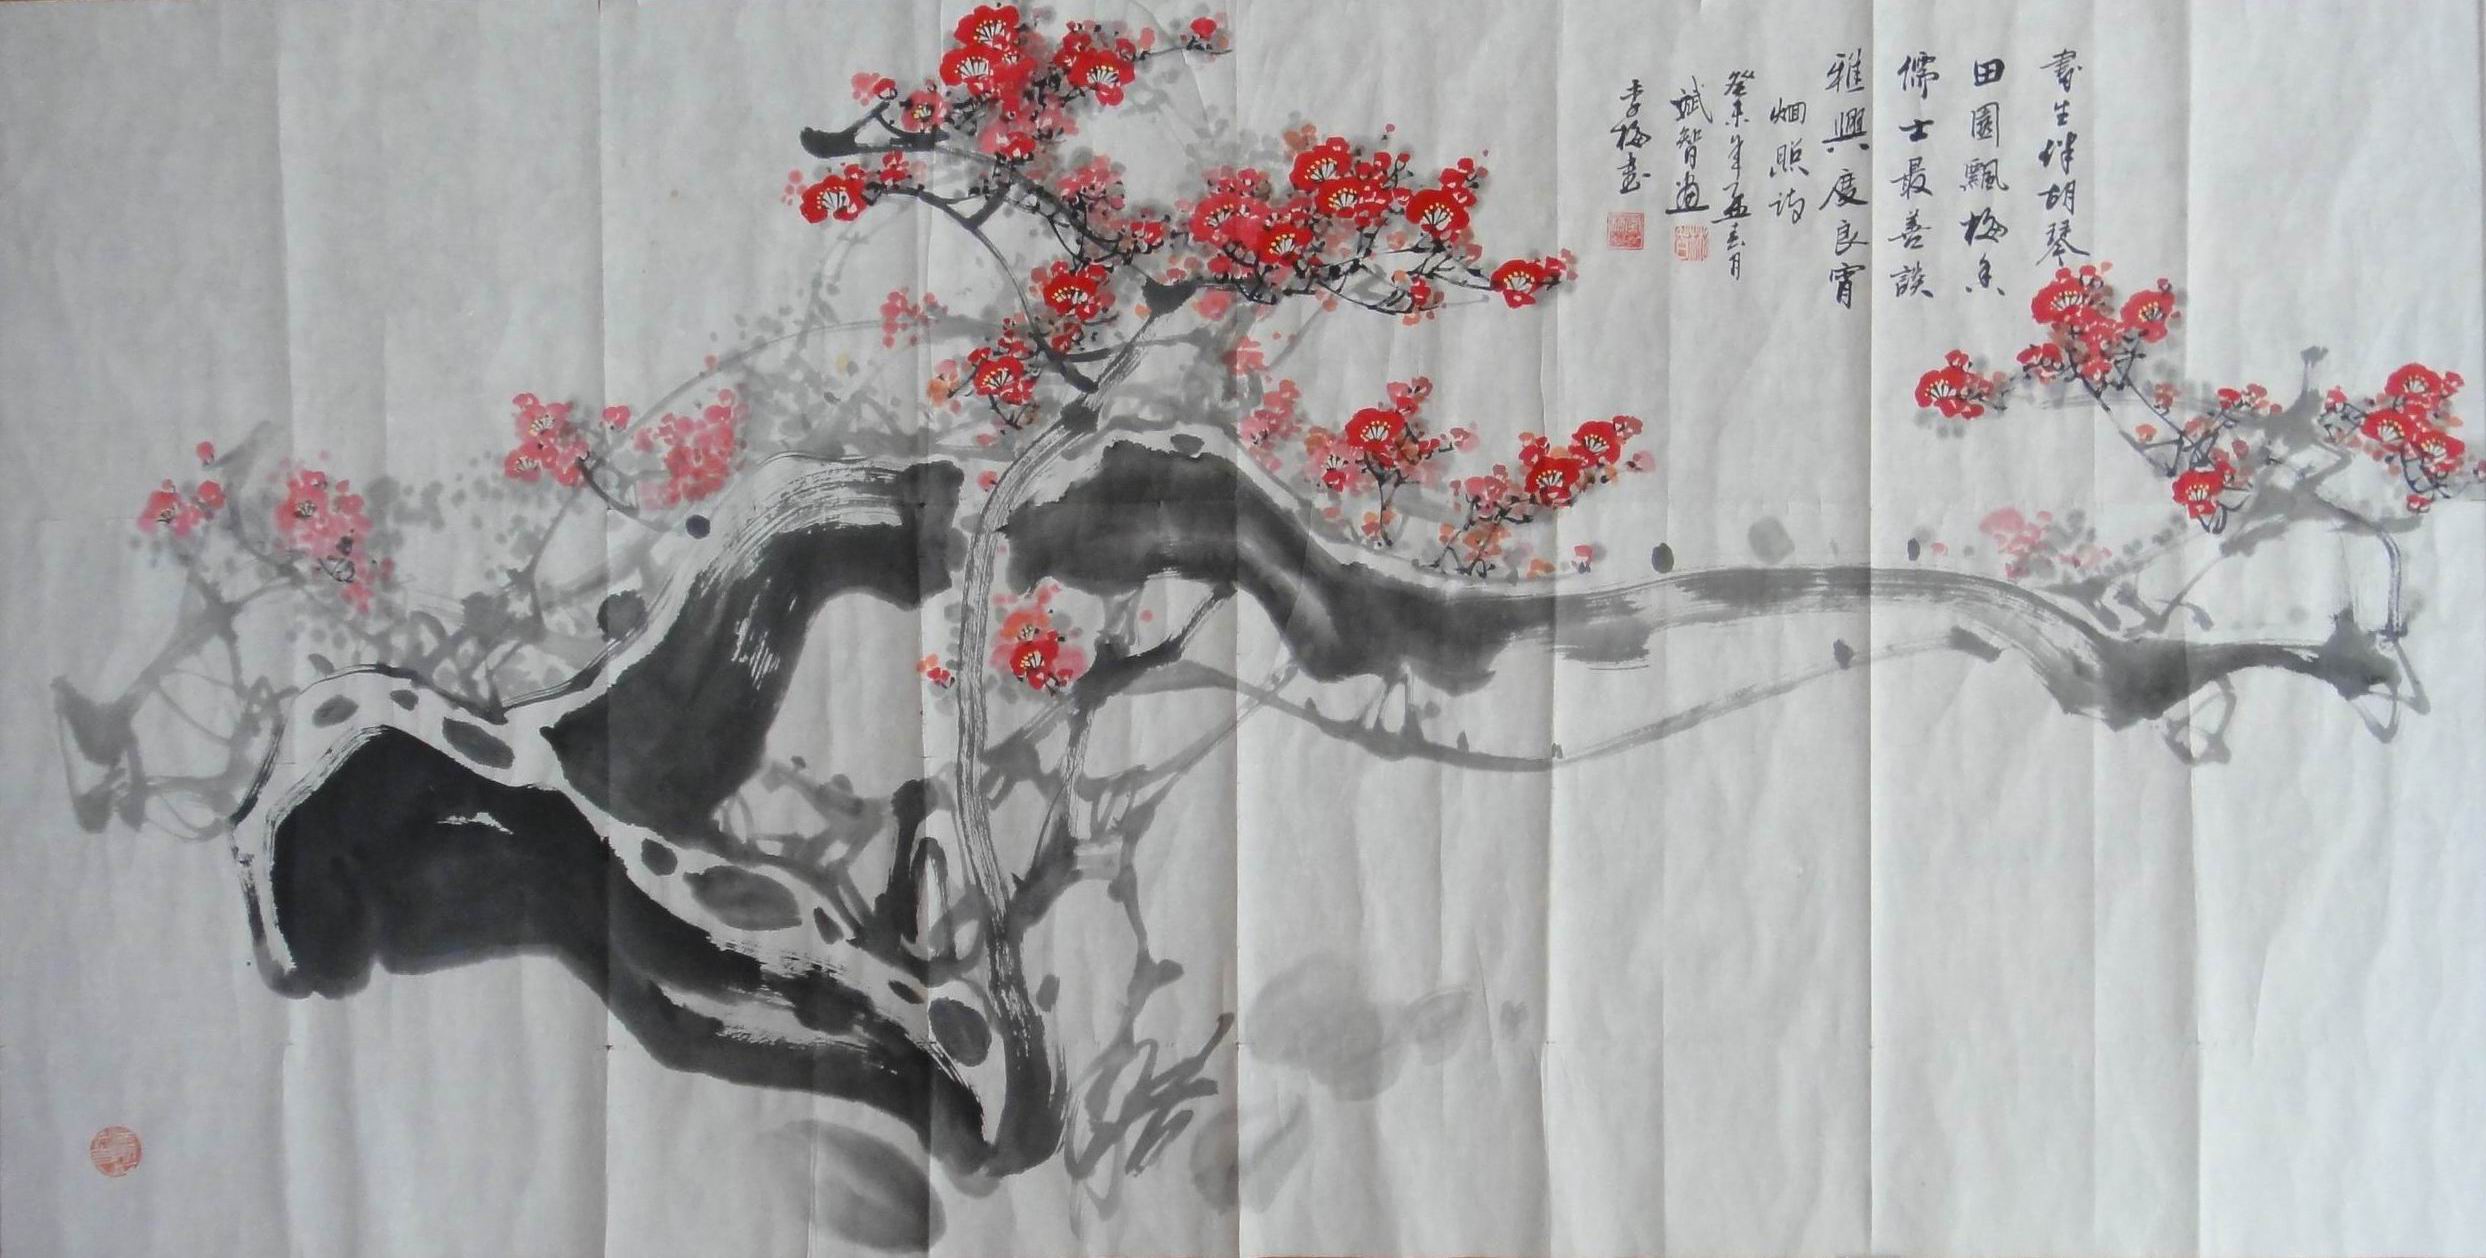 書生伴胡琴
田園飄梅香
儒士最善談
雅興度良宵
烟照詩
癸未年孟春月
斌智画
李梅書